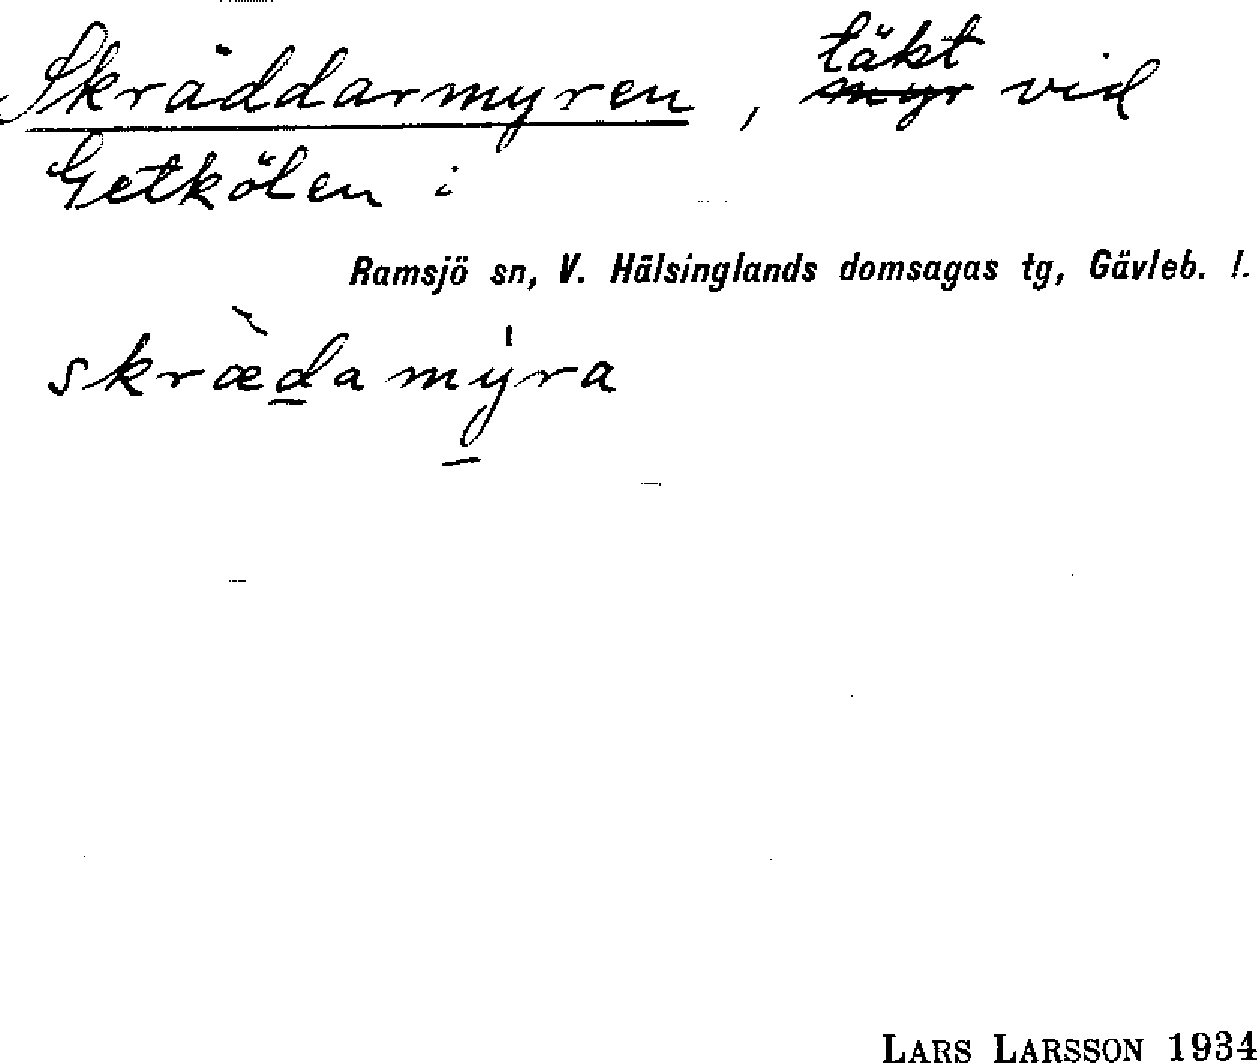 Skräddarmyren, täkt vid
Getkölen i
Ramsjö sn, V. Hälsinglands domsagas tg, Gävleb. l.
skrædamyra
LARS LARSSON 1934